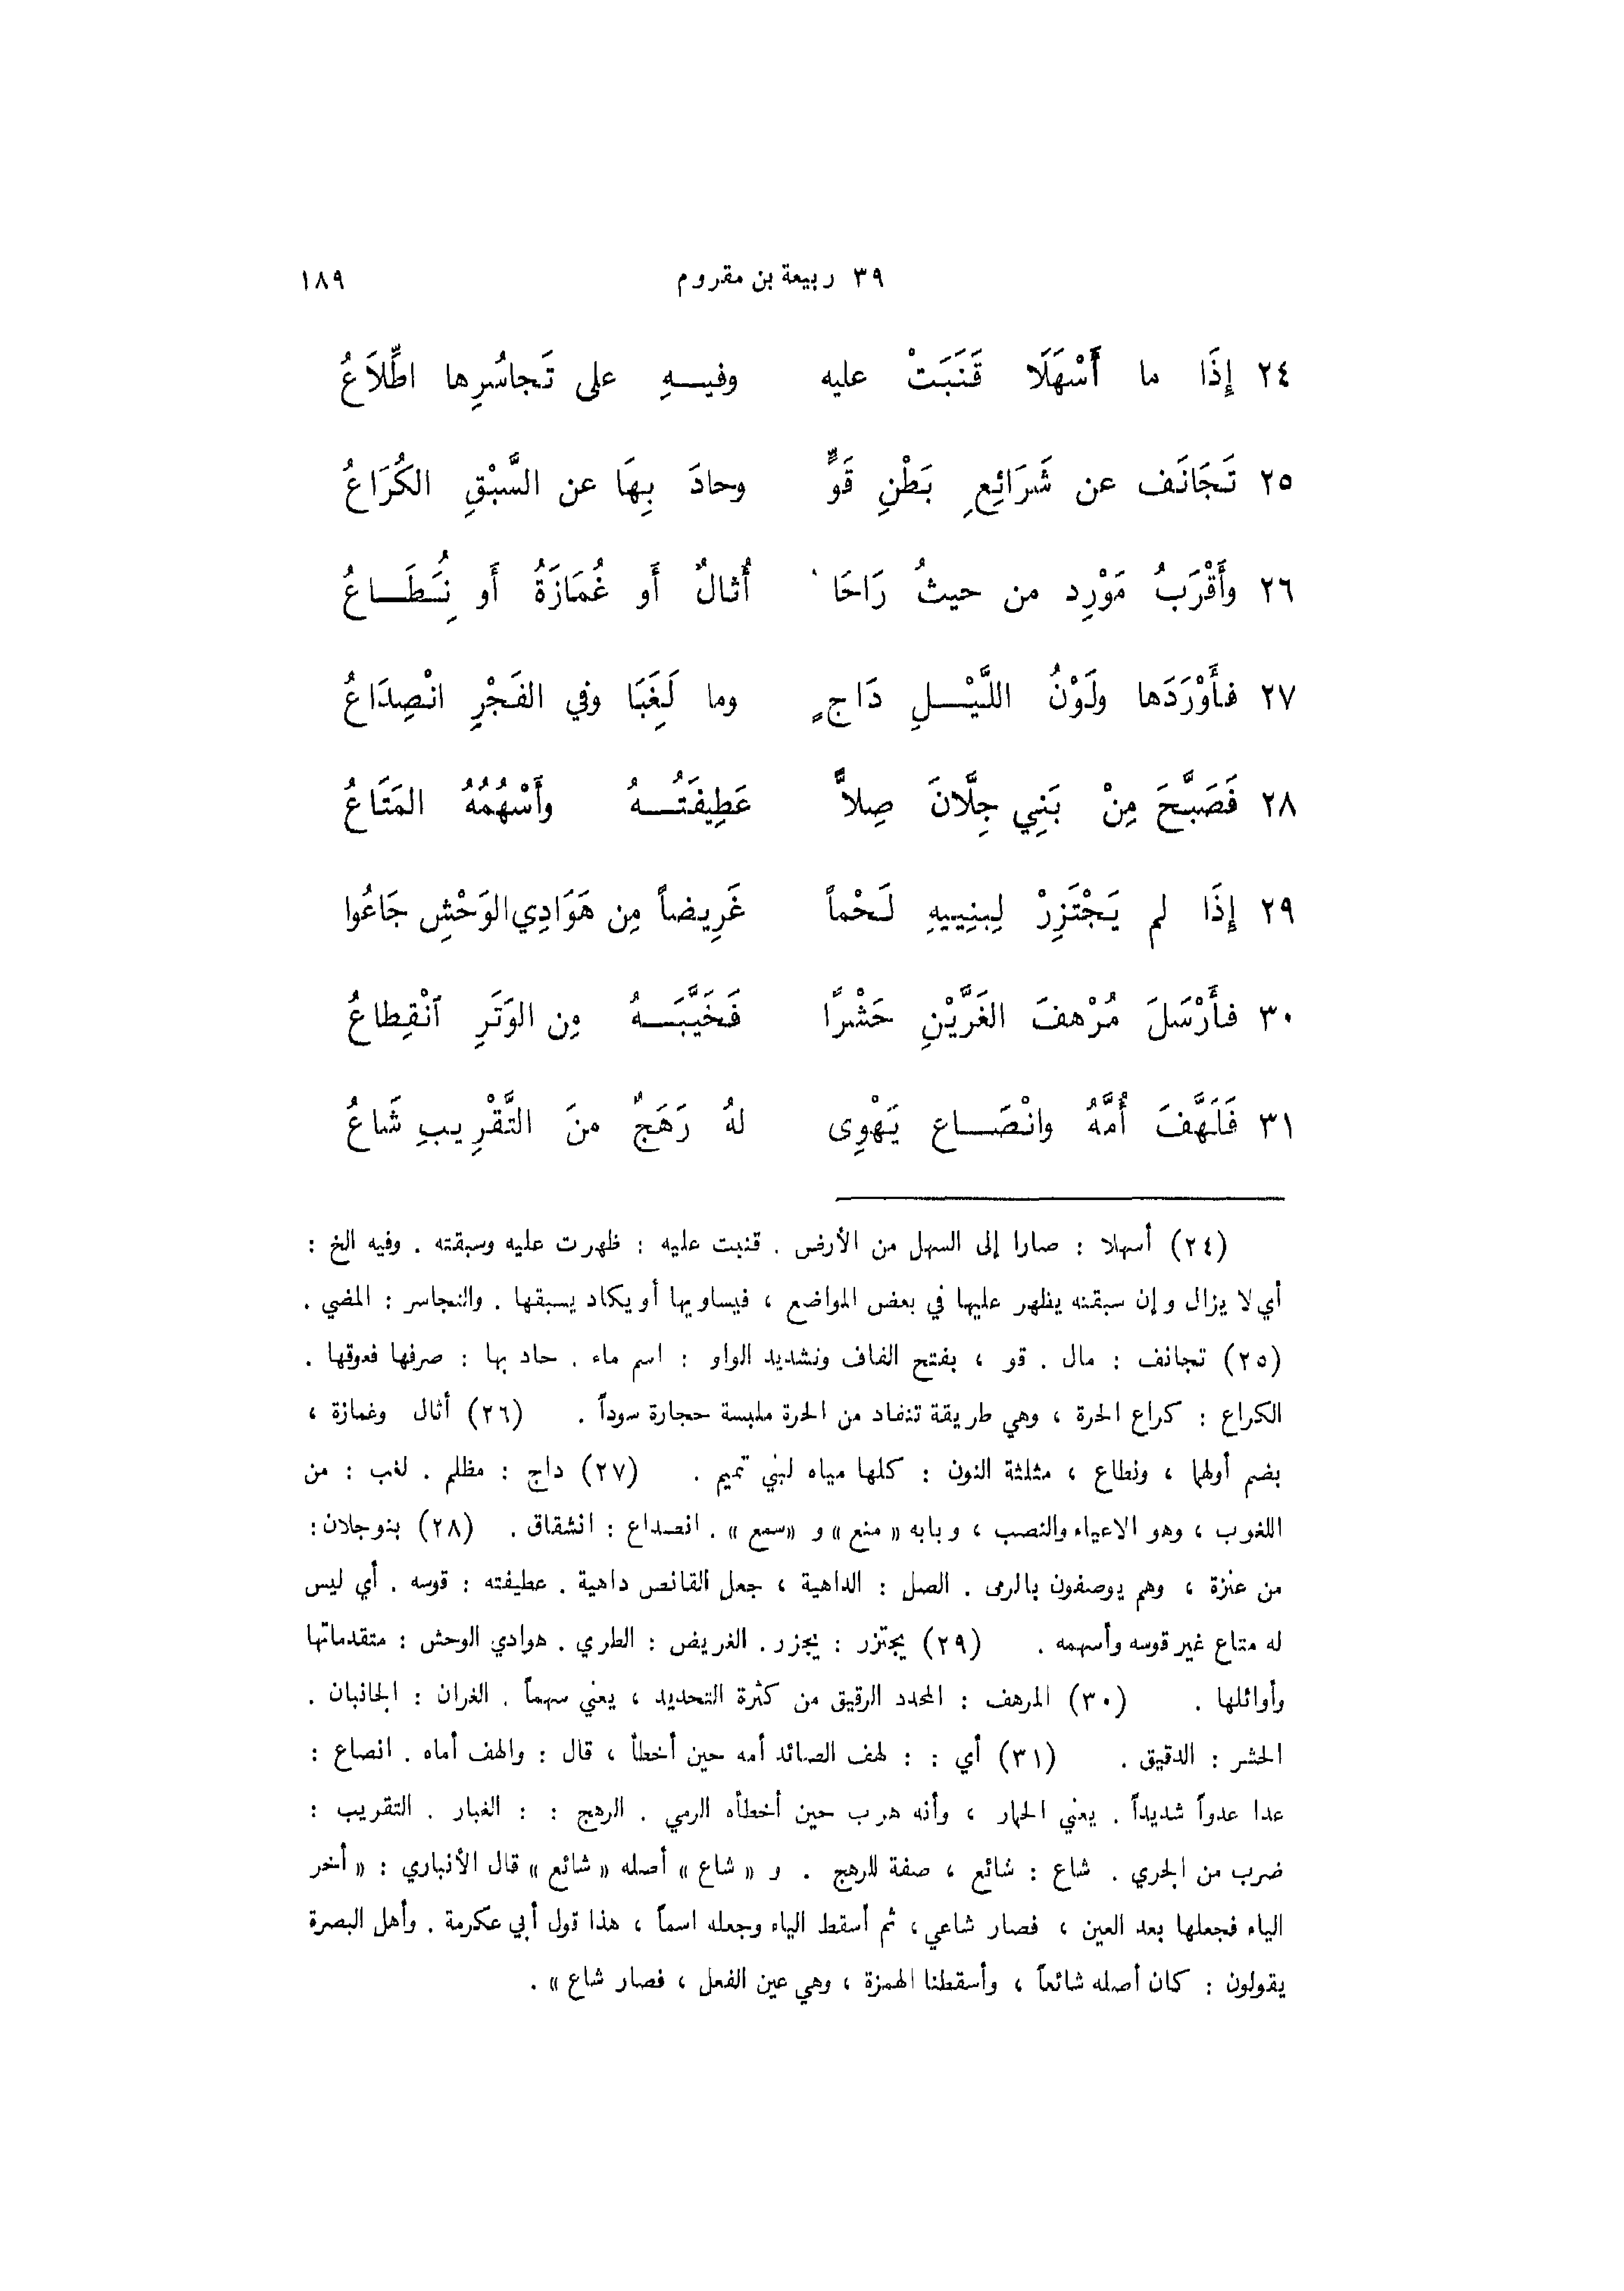 ٣٩ ربيعة بن مقروم ١٨٩
٢٤ إِذَا ما أَسْهَلَا قَنَبَتْ عليه وفيـــهِ على تَجاسُرِها اطِّلاَعُ
٢٥ تَجَانَف عن شَرَائِعِ بَطْنِ قَوٍّ وحادَ بِهَا عن السَّبْقِ الكُرَاعُ
٢٦ وأَقْرَبُ مَوْرِد من حيثُ رَاحَا أُثالٌ أَو غُمَازَةُ أَو نُِطَـــاعُ
٢٧ فأَوْرَدَها ولَوْنُ اللَّيْـــلِ دَاجٍ وما لَغِبَا وفي الفَجْرِ انْصِدَاعُ
٢٨ فَصَبَّحَ مِنْ بَنِي جِلَّانَ صِلاًّ عَطِيفَتُـــهُ وأَسْهُمُهُ المَتَاعُ
٢٩ إِذَا لم يَجْتَزِرْ لِبنِييهِ لَحْماً غَرِيضاً مِن هَوَادِي الوَحْشِ جَاعُوا
٣٠ فأَرْسَلَ مُرْهفَ الغَرَّيْنِ حَشْرًا فَخَيَّبَـــهُ مِن الوَتَرِ ٱنْقِطاعُ
٣١ فَلَهَّفَ أُمَّهُ وانْصَـــاع يَهْوِى لهُ رَهَجٌ منَ التَّقْرِيبِ شَاعُ
(٢٤) أسهلا : صارا إلى السهل من الأرض . قنبت عليه : ظهرت عليه وسبقته . وفيه الخ :
أي لا يزال وإن سبقته يظهر عليها في بعض المواضع ، فيساويها أو يكاد يسبقها . والتجاسر : المضي .
(٢٥) تجانف : مال . قو ، بفتح القاف وتشديد الواو : اسم ماء . حاد بها : صرفها فعوقها .
الكراع : كراع الحرة ، وهي طريقة تنقاد من الحرة ملبسة حجارة سوداً . (٢٦) أثال وغمازة ،
بضم أولهما ، ونطاع ، مثلثة النون : كلها مياه لبني تميم . (٢٧) داج : مظلم . لغب : من
اللغوب ، وهو الاعياء والنصب ، وبابه « منع » و « سمع » . انصداع : انشقاق . (٢٨) بنو جلان :
من عنزة ، وهم يوصفون بالرمى . الصل : الداهية ، جعل القانص داهية . عطيفته : قوسه . أي ليس
له متاع غير قوسه وأسهمه . (٢٩) يجتزر : يجزر . الغريض : الطري . هوادي الوحش : متقدماتها
وأوائلها . (٣٠) المرهف : المحدد الرقيق من كثرة التحديد ، يعني سهماً . الغران : الجانبان .
الحشر : الدقيق . (٣١) أي : : لهف الصائد أمه حين أخطأ ، قال : والهف أماه . انصاع :
عدا عدواً شديداً . يعني الحمار ، وأنه هرب حين أخطأه الرمي . الرهج : : الغبار . التقريب :
ضرب من الجري . شاع : شائع ، صفة للرهج . و « شاع » أصله « شائع » قال الأنباري : « أخر
الياء فجعلها بعد العين ، فصار شاعي ، ثم أسقط الياء وجعله اسماً ، هذا قول أبي عكرمة . وأهل البصرة
يقولون : كان أصله شائعاً ، وأسقطنا الهمزة ، وهي عين الفعل ، فصار شاع » .